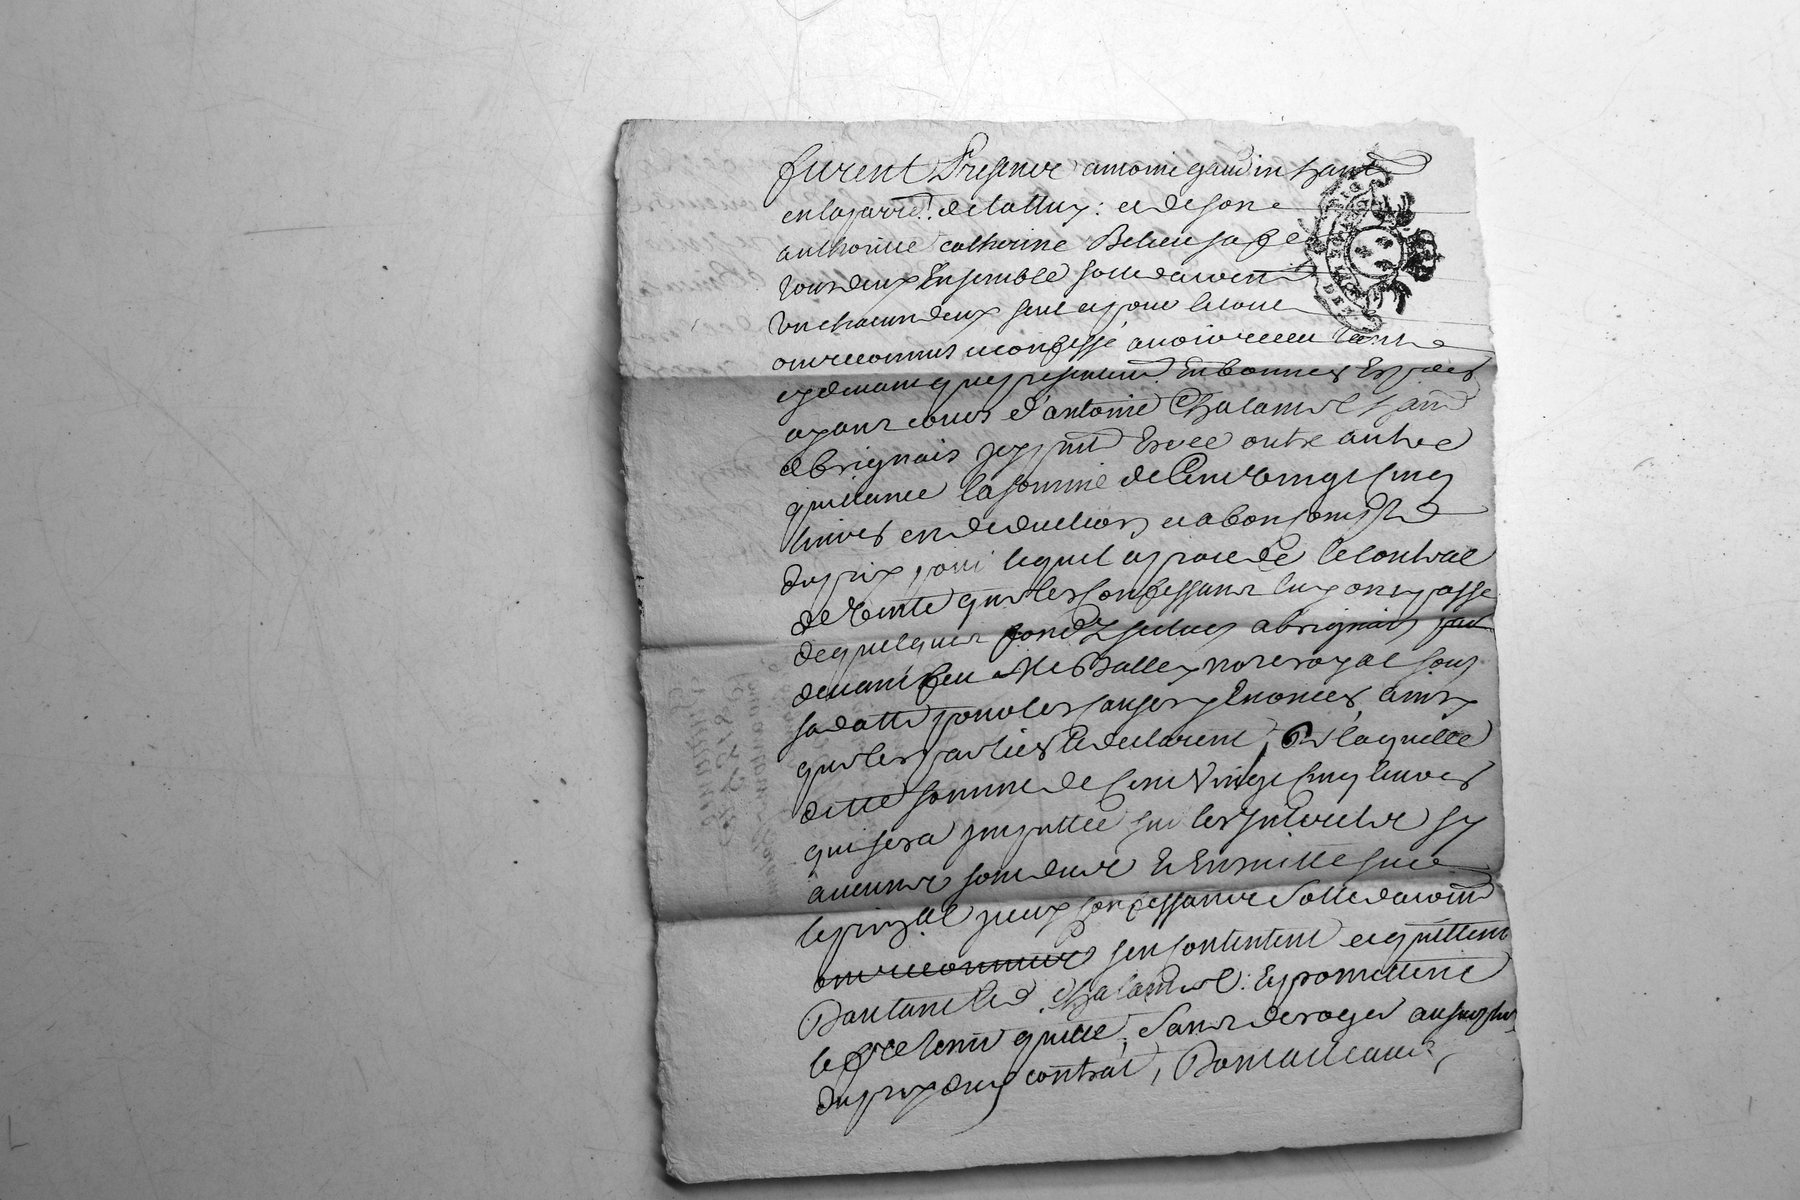 furent Presents antoine gaudin habit
en la parro: et de son
authorité catherine sa fe
tous deux Ensemble sollidairemt
un chacun deux seul et pour le tout
ont reconnus et confessé avoir receu
cy devant presentemt En bonnes Especes
ayant cours d'antoine Chalamel habit
a brignais Et ce outre autre
quittance la somme de Cent vingt cinq
livres en deduction et a bon compte
du prix pour lequel a passé le contrat
de vente que les confessants luy ont passé
de quelques fondz situés a brignais
devant feu Me nore royal sous
sa datte pour les causes y Enoncées, ainsy
que les parties le declarent, laquelle
ditte somme de Cent Vingt Cinq livres
qui sera imputtée sur les Interets sy
aucuns sont deus Et Ensuitte sur
le pinpal iceux confessants sollidairemt
ont reconnus s'en contentent et quittent
Dautant led Chalamel: Et promettent
le fre tenir quitte, Sans deroger au surplus
du prix dud contrat, Dont acte